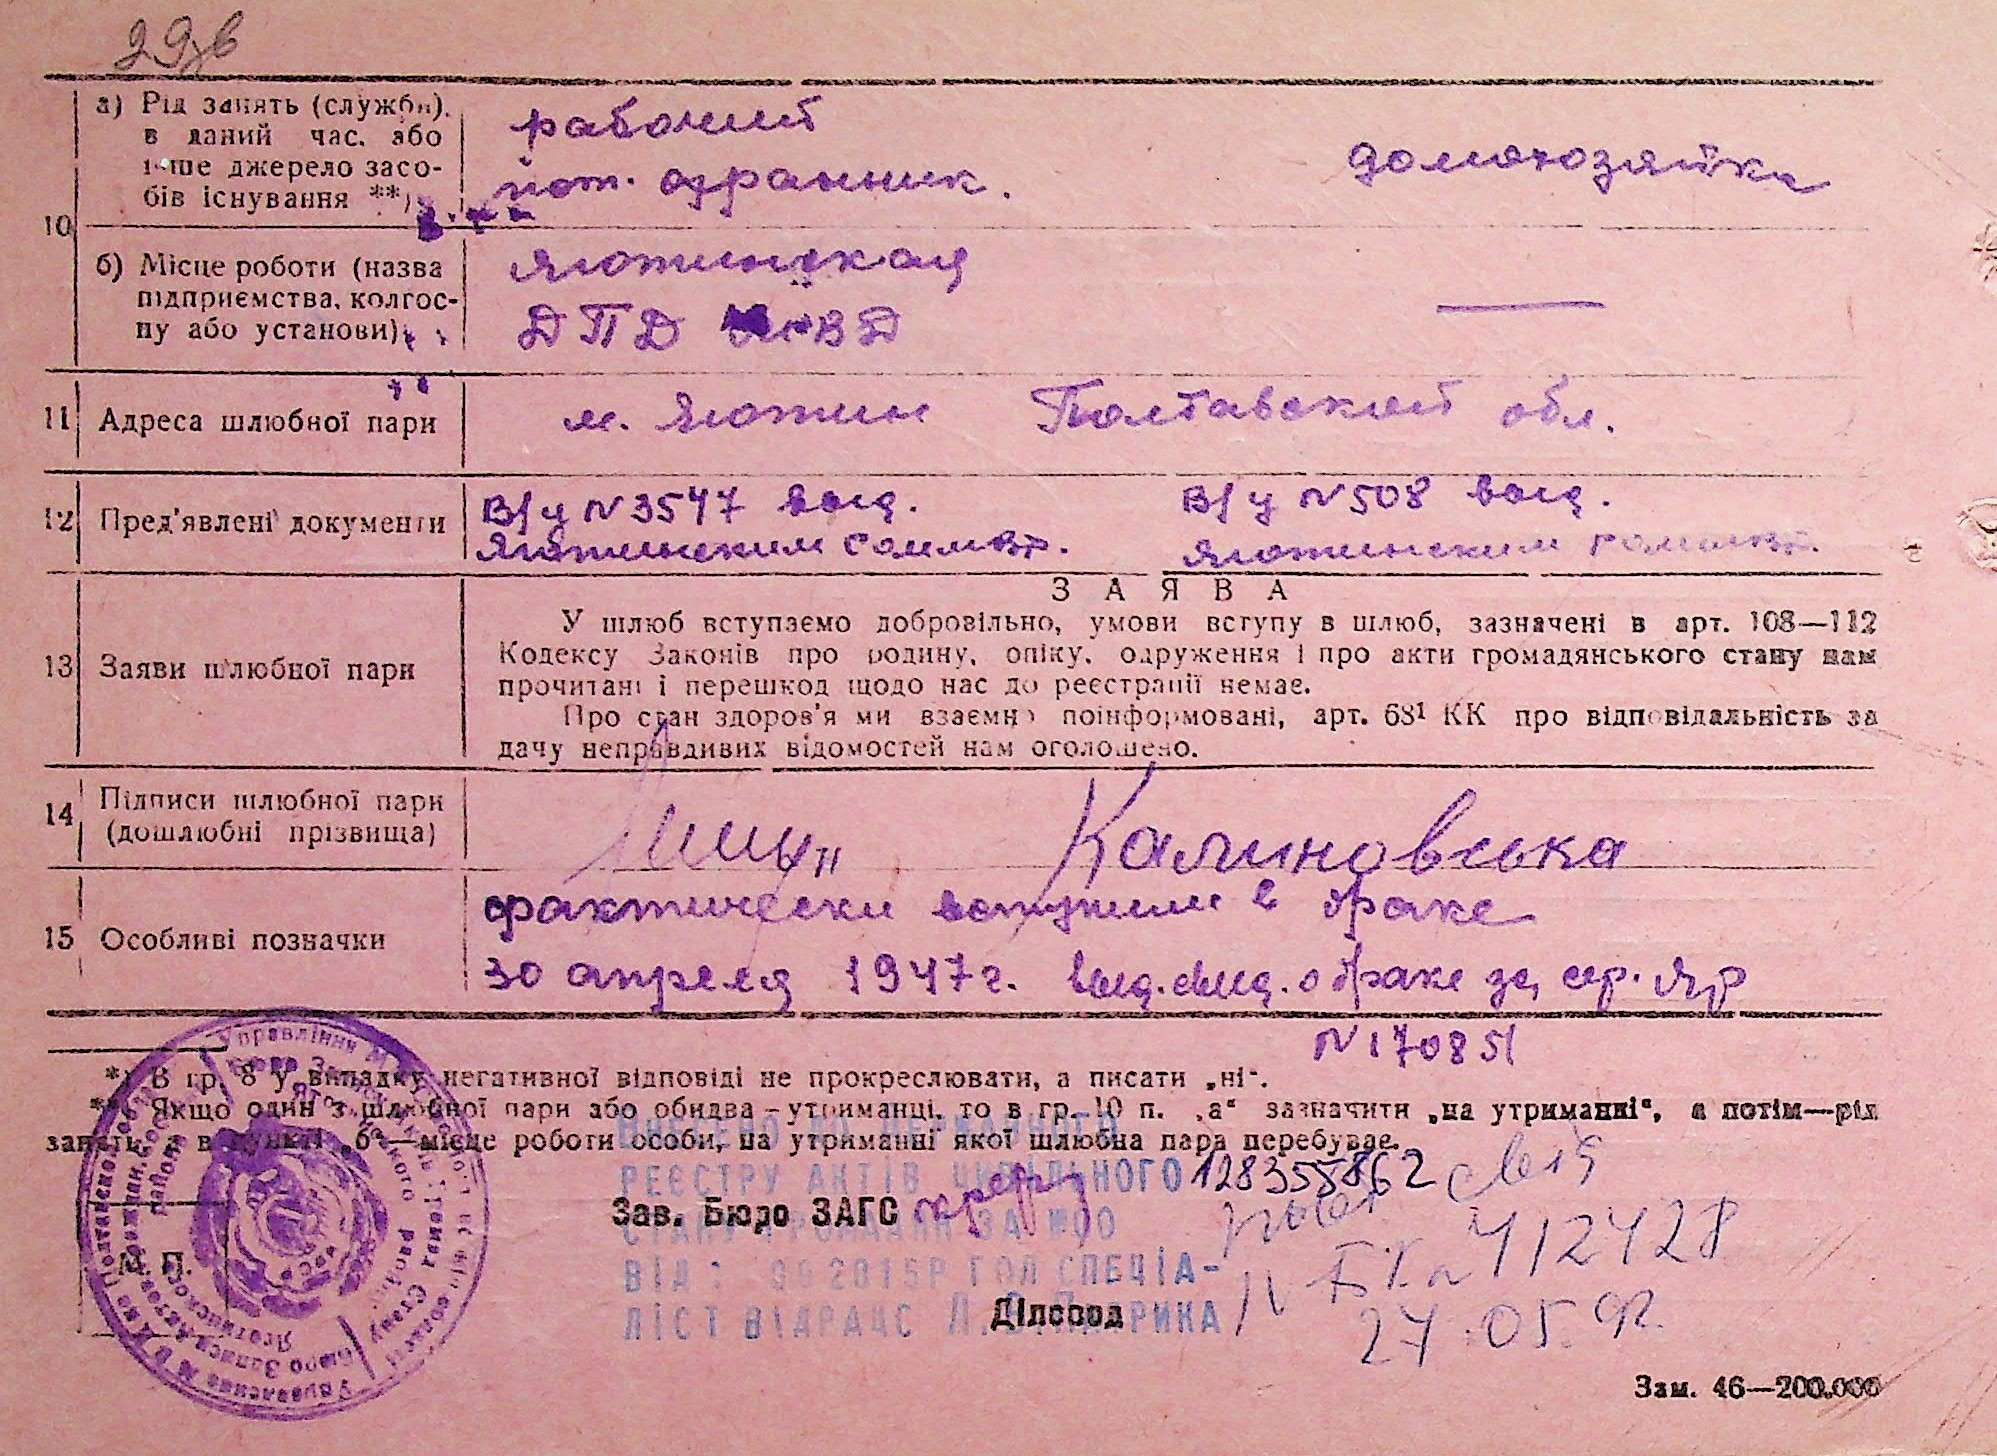 29зв
а) Рід занять (служби).
в даний час. або
інше джерело засо-
бів існування **)
рабочий
охранник.
домохозяйка
10
б) Місце роботи (назва
підприємства, колгос-
пу або установи)
Яготинская
ДПД МВД
11 Адреса шлюбної пари
м. Яготин Полтавской обл.
12 Пред'явлені документи
В/у N 3547 выд.
Яготинским
В/у N 508 выд.
Яготинским
13 Заяви шлюбної пари
ЗАЯВА
У шлюб вступаємо добровільно, умови вступу в шлюб, зазначені в арт. 108—112
Кодексу Законів про родину, опіку, одруження і про акти громадянського стану нам
прочитані і перешкод щодо нас до реєстрації немає.
Про стан здоров'я ми взаємно поінформовані, арт. 68¹ КК про відповідальність за
дачу неправдивих відомостей нам оголошено.
14 Підписи шлюбної пари
(дошлюбні прізвища)
Калиновська
15 Особливі позначки
фактически вступили в браке
30 апреля 1947 г. выд. свид. о браке за сер. ЯР
N 170851
*) В гр. 8 у випадку негативної відповіді не прокреслювати, а писати „ні“.
**) Якщо один з шлюбної пари або обидва – утриманці, то в гр. 10 п. „а“ зазначити „на утриманні“, а потім—рід
занять, а в пункті „б“—місце роботи особи, на утриманні якої шлюбна пара перебуває.
ВНЕСЕНО ДО ДЕРЖАВНОГО
РЕЄСТРУ АКТІВ ЦИВІЛЬНОГО
128355862
Зав. Бюро ЗАГС
СТАНУ ГРОМАДЯН ЗА №00
ВІД 2015Р ГОЛ СПЕЦІА-
ЛІСТ ВІДРАЦС
N 412428
27.05.92
М. П.
Діловод
Зам. 46—200.000